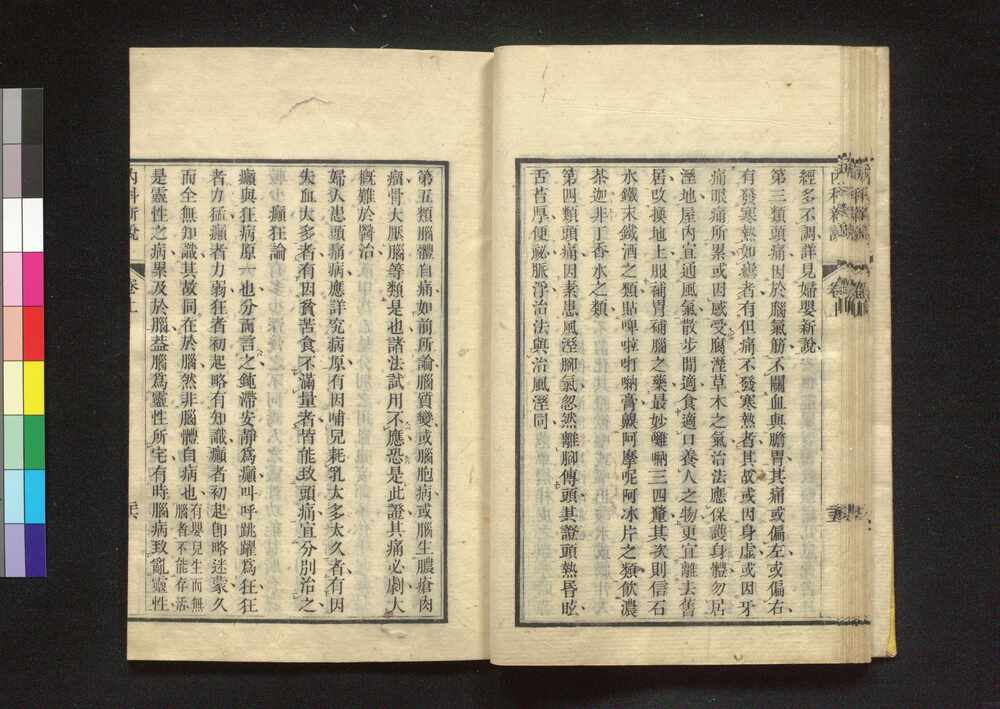 經多不調詳見婦嬰新說
第三類頭痛因於腦氣筋不關血與膽胃其痛或偏左或偏右
有發寒熱如瘧者有但痛不發寒熱者其故或因身虛或因牙
痛眼痛所累或因感受腐溼草木之氣治法應保護身體勿居
溼地屋內宜通風氣散步閒適食適口養人之物更宜離去舊
居改換地土服補胃補腦之藥最妙雞哪三四釐其次則信石
水鐵末鐵酒之類貼啤啦叮哪膏戴阿摩呢阿冰片之類飲濃
茶迦非丁香水之類
第四類頭痛因素患風溼腳氣忽然離腳傳頭其證頭熱昏眩
舌苔厚便祕脈浮治法與治風溼同
第五類腦體自痛如前所論腦質變或腦胞病或腦生膿瘡肉
瘤骨大壓腦等類是也諸法試用不應恐是此證其痛必劇大
槪難於醫治
婦人患頭痛病應詳究病原有因哺兒耗乳太多太久者有因
失血太多者有因貧苦食不滿量者皆能致頭痛宜分別治之
癲狂論
癲與狂病原一也分而言之鈍滯安靜爲癲叫呼跳躍爲狂狂
者力猛癲者力弱狂者初起略有知識癲者初起卽略迷蒙久
而全無知識其故同在於腦然非腦體自病也有嬰兒生而無腦者不能存活
是靈性之病累及於腦蓋腦爲靈性所宅有時腦病致亂靈性
內科新說
卷上